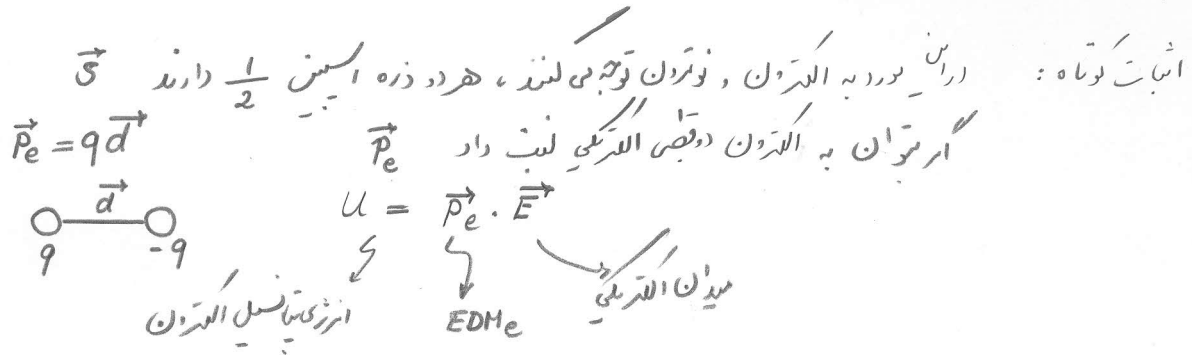 اثبات کوتاه : در این مورد به الکترون و نوترون توجه می کنند ، هر دو ذره اسپین 1/2 دارند S⃗
گر بتوان به الکترون دوقطبی الکتریکی نسبت داد P⃗e P⃗e = qd⃗
U = P⃗e . E⃗
d⃗
q -q
میدان الکتریکی
EDMe
انرژی پتانسیل الکترون